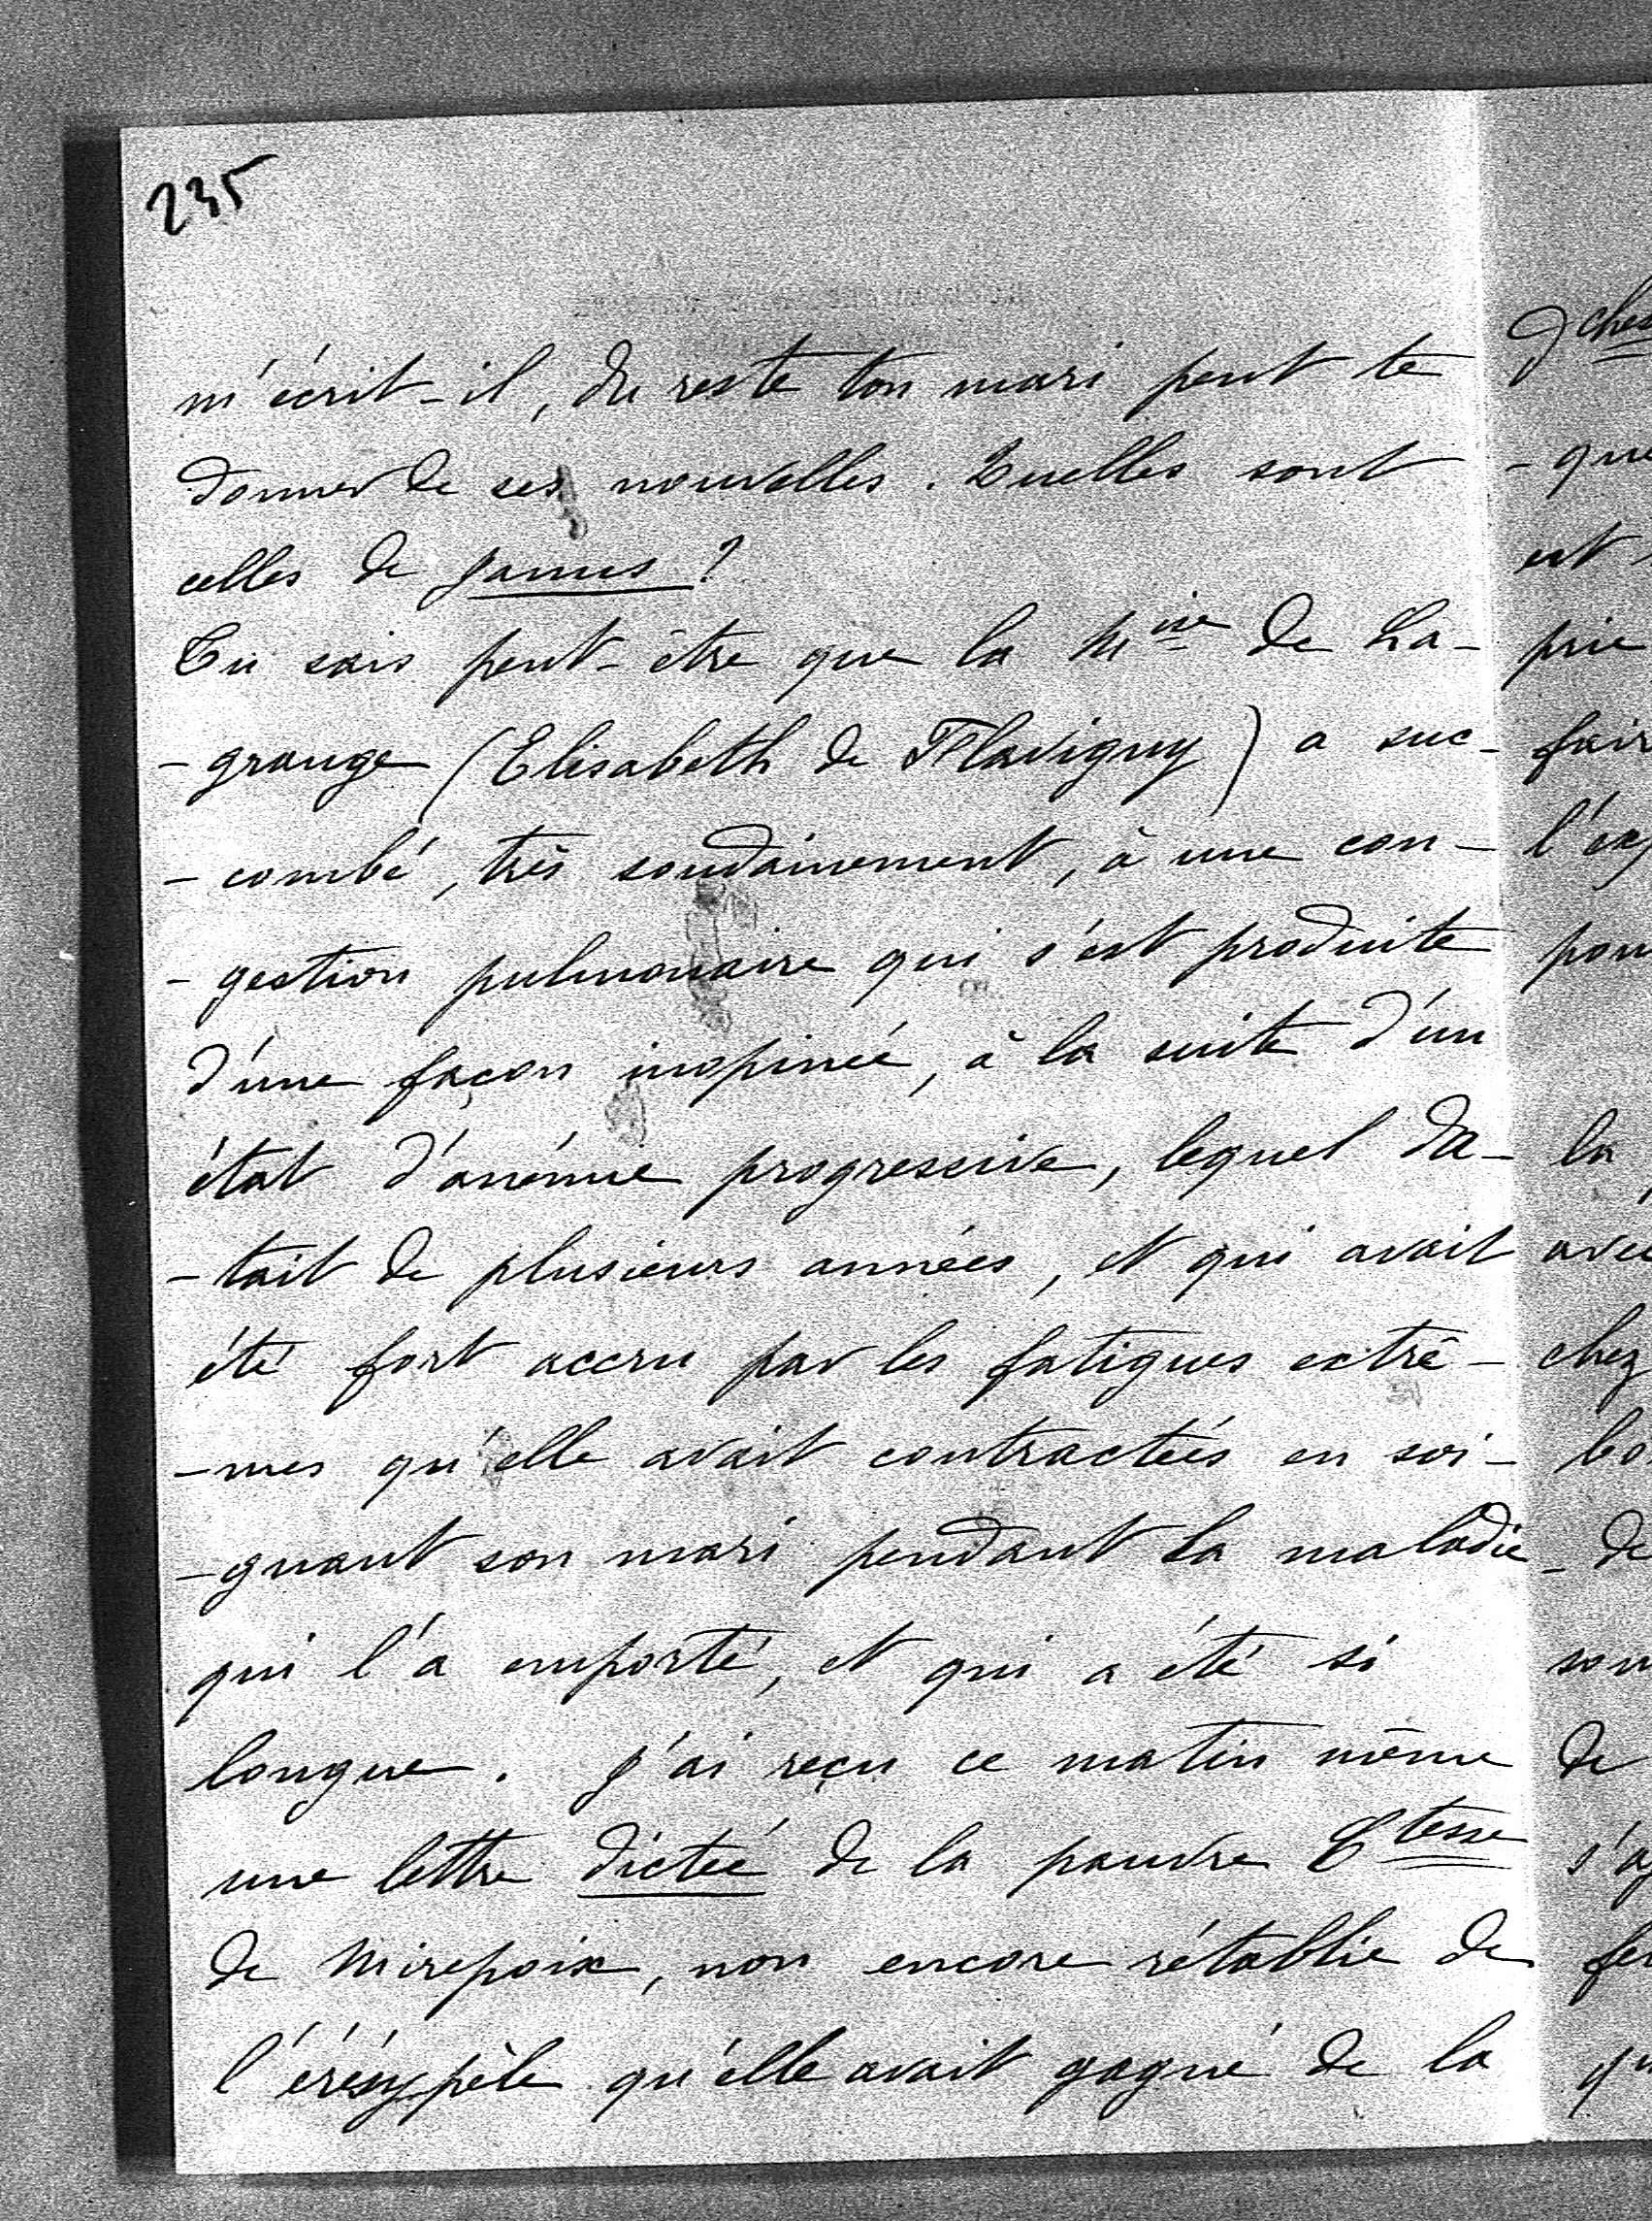 235
m'écrit-il, du reste ton mari peut te
donner de ses nouvelles. Quelles sont
celles de James ?
Tu sais peut-être que la Mise de La-
-grange (Elisabeth de Flavigny) a suc-
-combé, très soudainement, à une con-
-gestion pulmonaire qui s'est produite
d'une façon inopinée, à la suite d'un
état d'anémie progressive, lequel da-
-tait de plusieurs années, et qui avait
été fort accru par les fatigues extrê-
-mes qu'elle avait contractées en soi-
-gnant son mari pendant la maladie
qui l'a emporté, et qui a été si
longue. J'ai reçu ce matin même
une lettre dictée de la pauvre Ctesse
de Mirepoix, non encore rétablie de
l'érésypèle qu'elle avait gagné de la